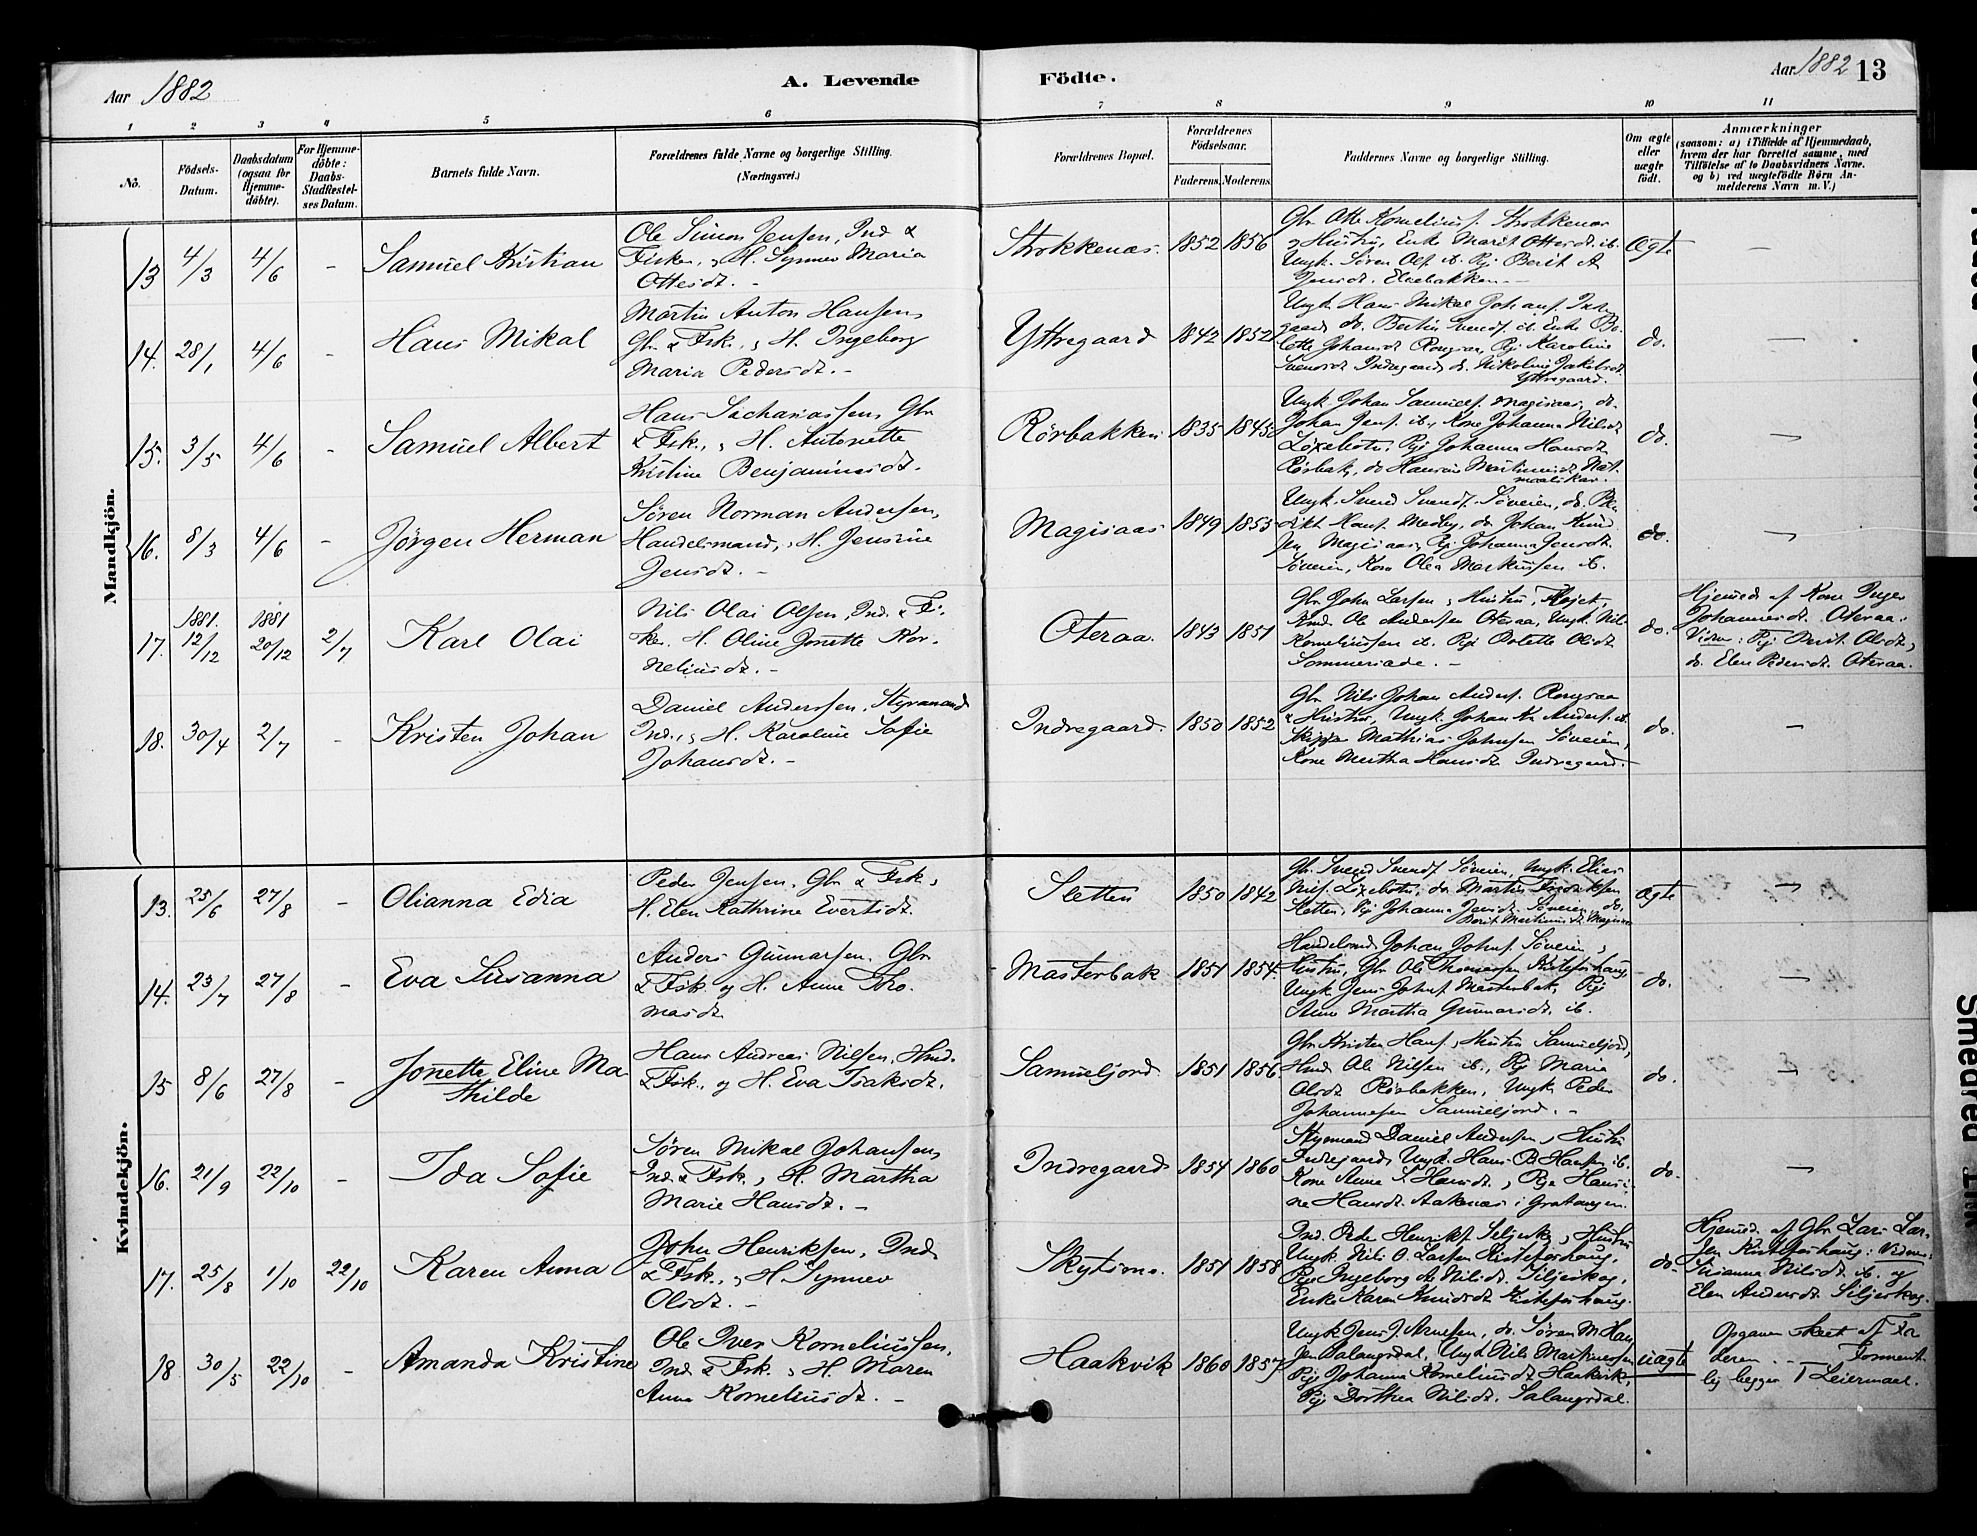 Aar 1882
A. Levende
Födte.
Aar 1882 13
1 2 3 4 5 6 7 8 9 10 11
No.
Födsels-
Datum.
Daabsdatum
(ogsaa for
Hjemme-
döbte).
For Hjemme-
döbte:
Daabs-
Stadfæstel-
ses Datum.
Barnets fulde Navn.
Forældrenes fulde Navne og borgerlige Stilling.
(Næringsvei.)
Forældrenes Bopæl.
Forældrenes
Födselsaar.
Faderens. Moderens.
Faddernes Navne og borgerlige Stilling.
Om ægte
eller
uægte
födt.
Anmærkninger
(saasom: a) i Tilfælde af Hjemmedaab,
hvem der har forrettet samme, med
Tilföielse af to Daabsvidners Navne.
og b) ved uægtefödte Börn An-
melderens Navn m. V.)
Mandkjön.
13 4/3 4/6 - Samuel Kristian
Ole Simon Jensen, Ind &
Fisker, H. Synnev Maria
Ottesdt. -
Strokkenæs. 1852 1856
Gbr Otte Korneliusf. Strokkenæs
og Hustru, Enke Marit Ottesdt. ib.
Ungk. Søren Olsf. ib. Pig. Berit A
Jensdt. Elvebakken -
Ægte -
14. 28/1 4/6 - Hans Mikal
Martin Anton Hansen,
Gbr & Fsk., H. Ingeborg
Maria Pedersdt. -
Yttregaard 1842 1852
Ungk. Hans Mikal Johansf.
do. Bertin Svendsf. ib. Enke
Johansdt. Rongsaa, Pig Karoline
Svendsdt. Indregaard, do. Nikoline Jakobsdt.
Yttregaard.
do. -
15. 3/5 4/6 - Samuel Albert
Hans Sachariassen, Gbr
& Fsk., H. Antonette
Kristine Benjaminsdt.
Rørbakken 1835 1845
Ungk. Johan Samuelsf. Magisaas, do.
Johan Jensf. ib, Kone Johanna Nilsdt.
Löxebotn, Pig Johanna Hansdt.
Rørbak, do
do. -
16. 8/3 4/6 - Jörgen Herman
Søren Norman Andersen,
Handelsmand, H. Jensine
Jensdt. -
Magisaas 1849 1853
Ungk. Svend Svendsf. Søveien, do.
Hansf. Medby, do. Johan
Magisaas, Pig. Johanna Jensdt.
Søveien, Kone Olea Markussen ib.
do. -
17. 1881. 12/12 1881 20/12 2/7 Karl Olai
Nils Olai Olsen, Ind. & Fi-
sker. H. Oline Jonette Kor-
neliusdt. -
Oteraa. 1843 1851
Gbr John Larsen, Hustru,
Ind. Ole Andersen Oteraa, Ungk. Nils
Korneliussen ib. Pig Olsdt
do.
Hjemmed. af Kone Inger
Johannesdt. Oteraa.
Vidner: Pig Berit Olsdt.,
do. Elen Pedersdt. Oteraa.
18. 30/4 2/7 - Kristen Johan
Daniel Anderssen, Styrmand
Ind., H. Karoline Sofie
Johansdt. -
Indregaard. 1850 1852
Gbr. Nils Johan Andersf. Rongsaa
& Hustru, Ungk. Johan Kr Andersf. ib.
Skipper Mathias Johnsen Søveien,
Kone Martha Hansdt. Indregaard.
do. -
Kvindekjön.
13. 25/6 27/8 - Olianna Edia
Peder Jensen, Gbr & Fsk,
H. Elen Kathrine Evertsdt.
Sletten 1850 1842
Gbr. Svend Svendsf Søveien, Ungk. Elias
Nilsf. Löxebotn, do. Martin Fredriksen
Sletten, Pig Johanna Jensdt. Søveien do.
Berit Martinusdt. Magisaas
Ægte -
14. 23/7 27/8 - Eva Susanna
Anders Gunnarsen, Gbr
& Fsk og H. Anne Tho-
masdt.
Masterbak 1851 1854.
Handelsmd Johan Johnsf. Søveien,
Hustru, Gbr. Ole Thomassen Kristofferhaug
Ungk Jens Johnsf Masterbak, Pige
Anne Martha Gunnarsdt. ib.
do. -
15 8/6 27/8 - Jonette Eline Ma
thilde
Hans Andreas Nilsen, Hmd.
& Fsk., og H. Eva Isaksdt.
Samueljord. 1851 1856.
Gbr Kristen Hansf., Hustru Samueljord,
Hmd Ole Nilsen ib., Pig Marie
Olsdt Rørbakken, Ungk. Peder
Johannesen Samueljord. -
do. -
16. 21/9 22/10 - Ida Sofie
Søren Mikal Johansen,
Ind. & Fsk., H. Martha
Marie Hansdt. -
Indregaard 1854 1860
Styrmand Daniel Andersen, Hustru
Indregaard, Ungk. Hans P. Hansen ib.
Kone Anne S. Hansdt., Pige Hansi-
ne Hansdt. Aakenæs i Gratangen.
do. -
17. 25/8 1/10 22/10 Karen Anna
John Henriksen, Ind.
& Fsk., H. Synnev
Olsdt. -
Skytsmo. 1851 1858
Ind. Peder Henriksf. Siljeskog, Hustru
Ungk. Nils O. Larsen Kristofferhaug,
Pige Ingeborg Nilsdt. Siljeskog,
Enke Karen Knudsdt. Kristofferhaug.
do.
Hjemmed. af Gbr Lars Lar-
sen Kristofferhaug: Vidner:
Susanna Nilsdt. ib. og
Elen Andersdt. Siljeskog.
18. 30/5 22/10 - Amanda Kristine
Ole Iver Korneliussen,
Ind. & Fsk. H. Maren
Anna Korneliusdt. -
Haakvik 1860 1857
Ungk Jens J. Arnesen, do. Søren M. Han
sen Salangsdal, Ungk Nils Martinussen
Pig Johanna Korneliusdt. Haakvik,
Pige Dorthea Nilsdt. Salangsdal.
uægte
Opgaven skeet af Fa
deren. - Forment-
lig begges I Leiermaal.